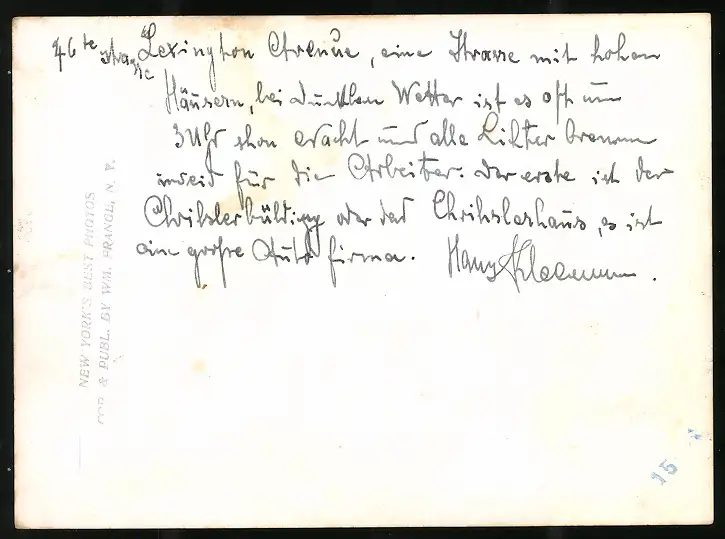 46te Strasse Lexington Avenue, eine Strasse mit hohen
Häusern, bei dunklem Wetter ist es oft um
3 Uhr schon Nacht und alle Lichter brennen
für die Arbeiter. Der erste ist der
Chrikslerbüldingg oder das Chrikslerhaus, es ist
eine große Auto firma. Hans
NEW YORK'S BEST PHOTOS
COP. & PUBL. BY WM. FRANGE, N. Y.
15